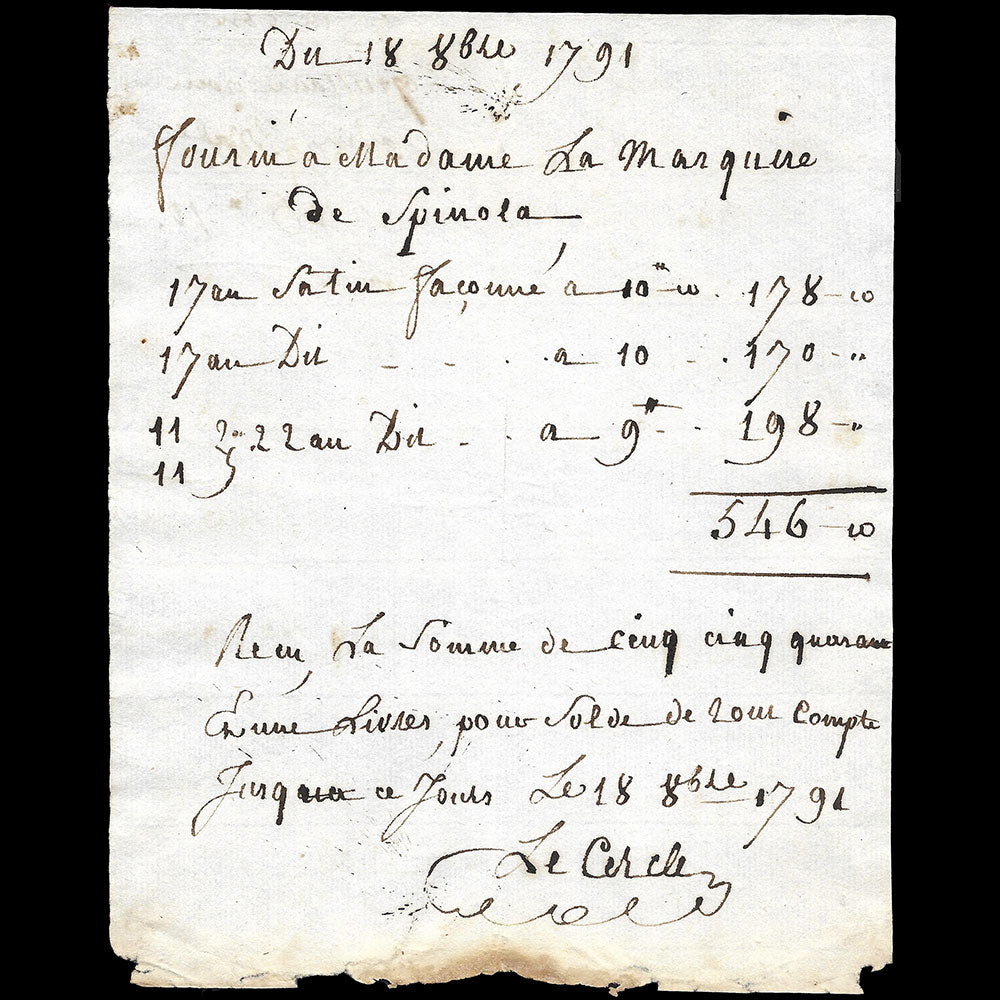 Du 18 8bre 1791
fourni a Madame La Marquise
de Spinola
17 au Satin façonné a 10# 10 . 178 - 10
17 au Dit - - . a 10 - . 170 - "
11 2 .. 22 au Dit - . a 9# - . 198 - "
11
546 - 10
Recu La Somme de cinq cinq quarante
Et une Livres, pour Solde de tout Compte
Jusqua ce Jours Le 18 8bre 1791
Le Cercle